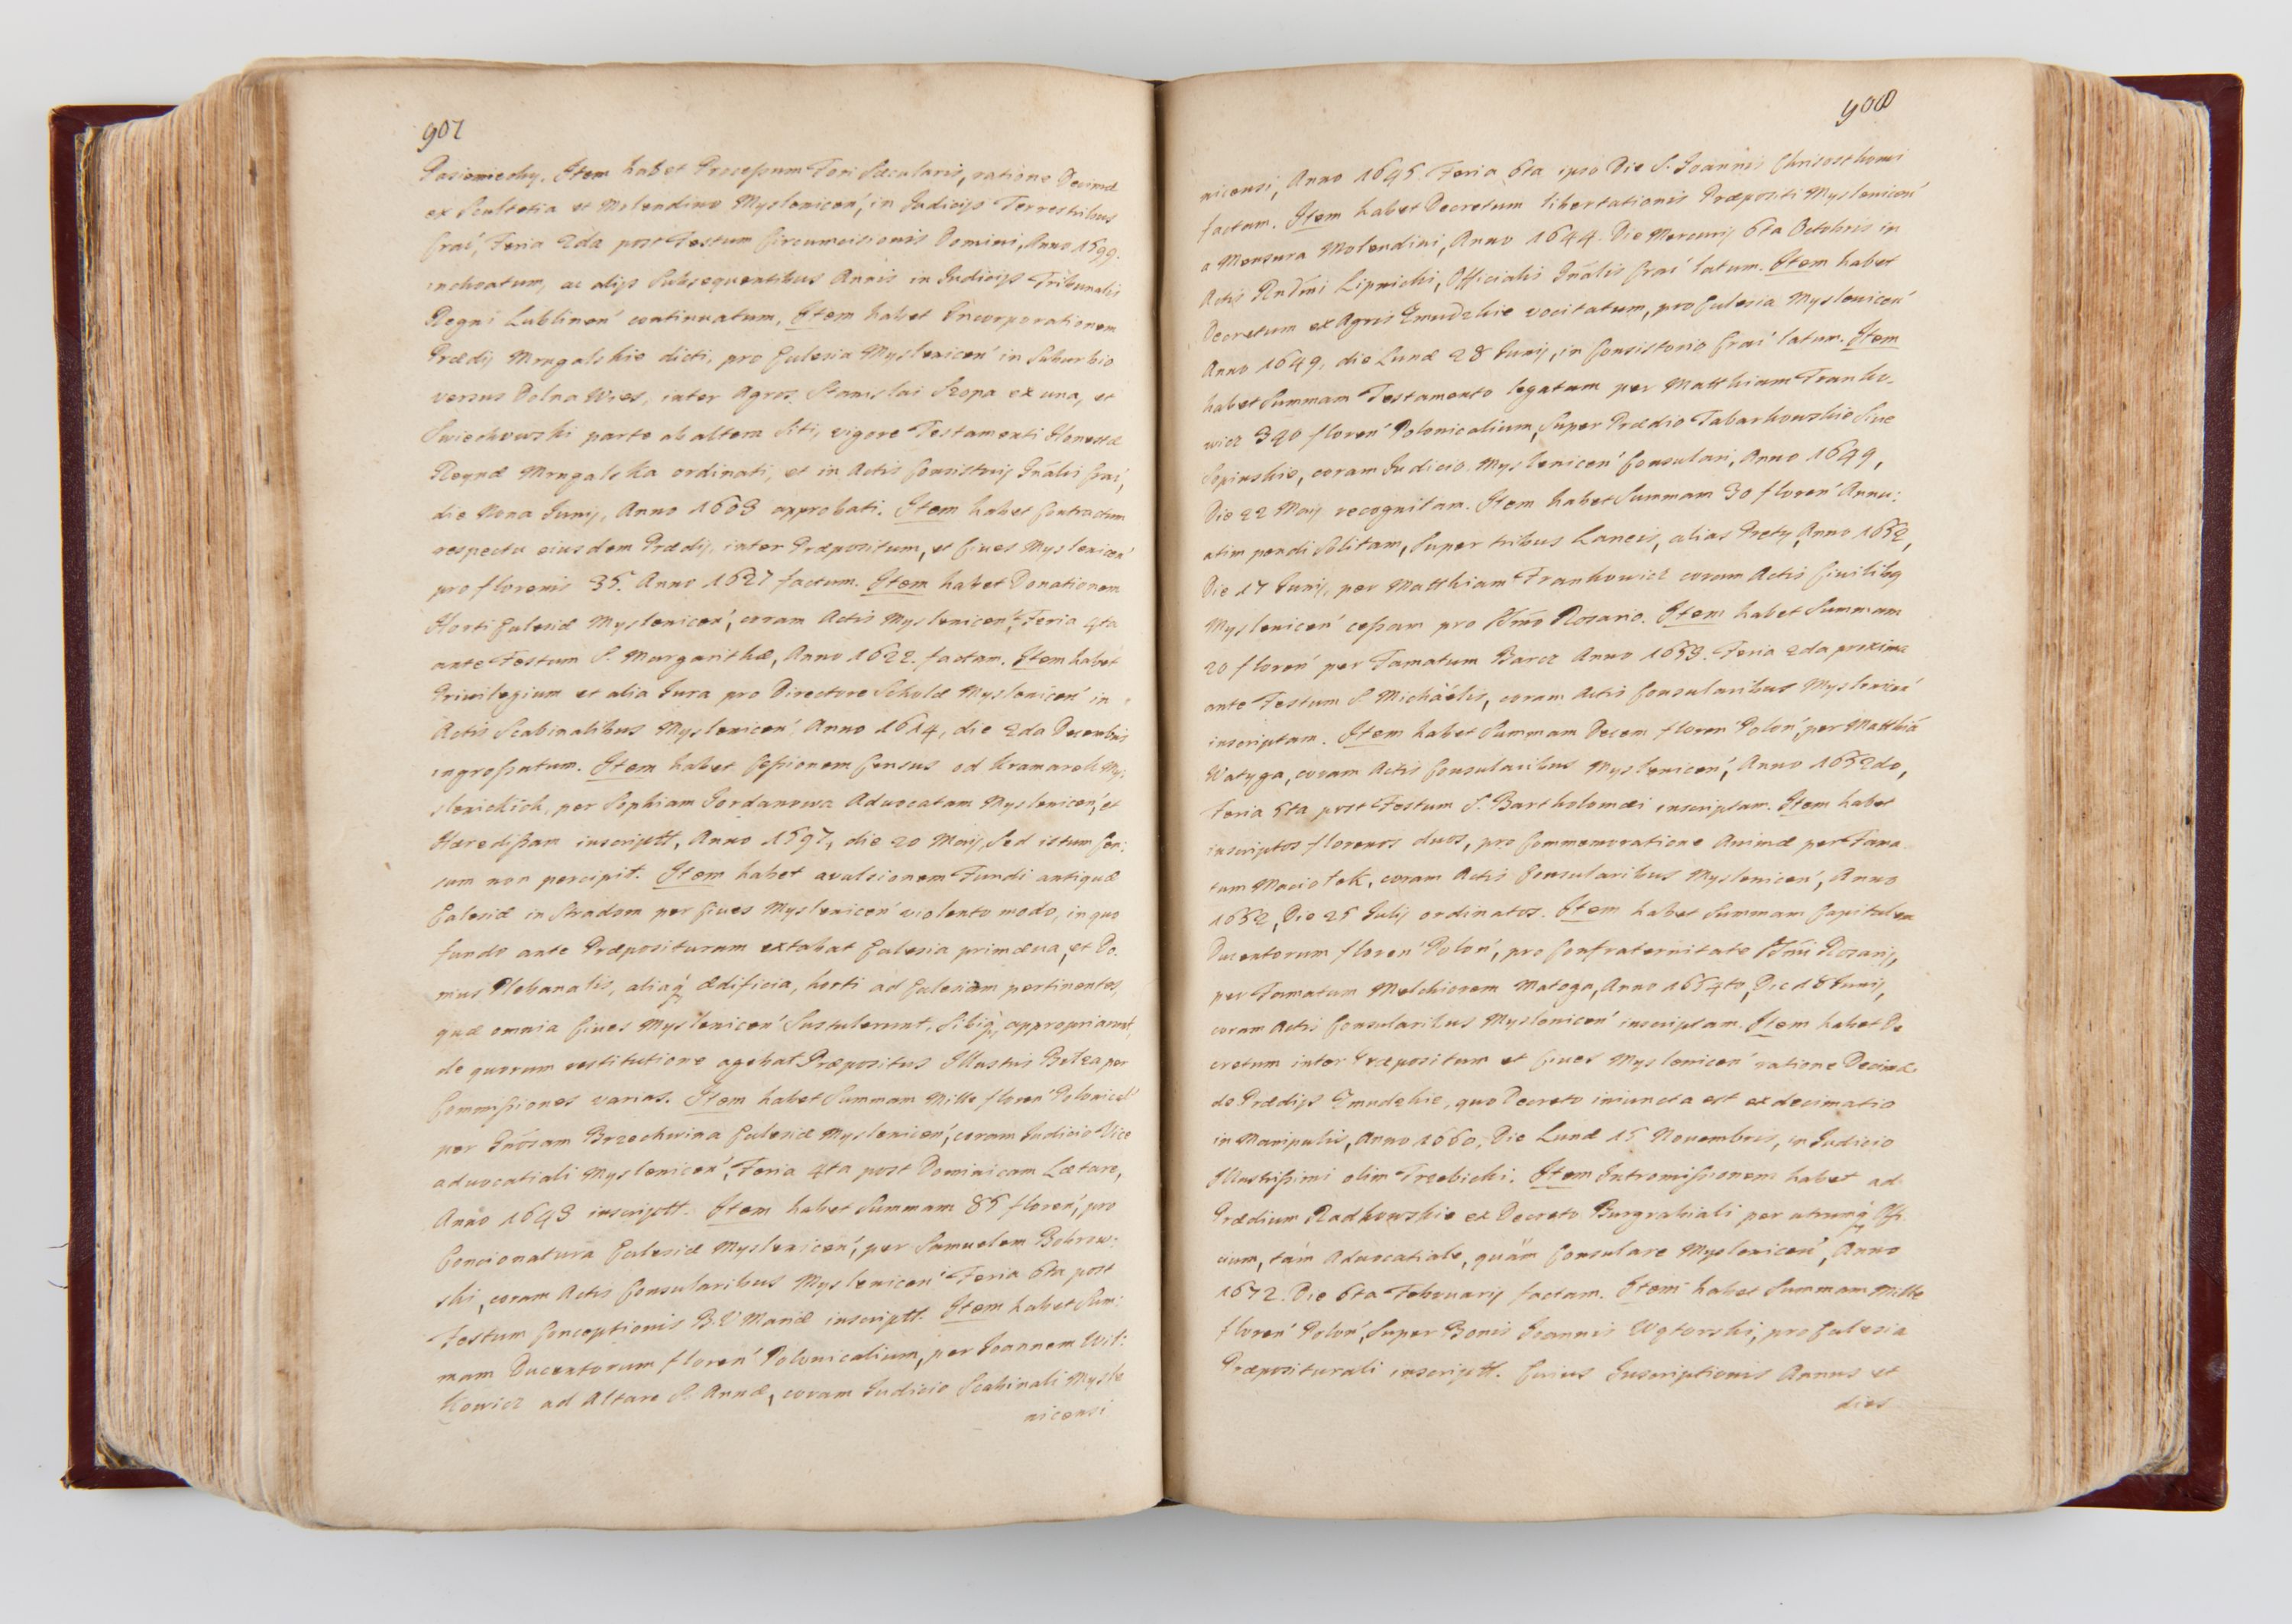 907
Pasiemiechy. Item habet Processum Fori Sæcularis, ratione Decimæ
ex Scultetia et Molendino Myslenicen', in Judicijs Terrestribus
Crac', Feria 2da post Festum Circumcisionis Domini, Anno 1699.
inchoatum, ac alijs Subsequentibus Annis in Judicijs Tribunalis
Regni Lublinen' continuatum. Item habet Incorporationem
Prædij Mrugalskie dicti, pro Ecclesia Myslenicen' in Suburbio
versus Dolna Wies, inter Agros Stanislai Szopa ex una, et
Swiechowski parte ab altera Siti, vigore Testamenti Honestæ
Reynæ Mrugalska ordinati, et in Actis Consistorij Gnalis Crac',
die Nona Junij, Anno 1603 approbati. Item habet Contractum
respectu eiusdem Prædij, inter Præpositum, et Cives Myslenicen'
pro florenis 35. Anno 1627 factum. Item habet Donationem
Horti Ecclesiæ Myslenicen', coram Actis Myslenicen', Feria 4ta
ante Festum S. Margarithæ, Anno 1622. factam. Item habet
Privilegium et alia Jura pro Directore Scholæ Myslenicen' in
Actis Scabinalibus Myslenicen', Anno 1614, die 2da Decembris
ingrossatum. Item habet Cessionem Census od Kramarek My:
slenickich, per Sophiam Jordanowa Advocatam Myslenicen', et
Hæredissam inscriptt, Anno 1597, die 20 Maij, Sed istum Cen:
sum non percipit. Item habet avulsionem Fundi antiquæ
Ecclesiæ in Stradom per Cives Myslenicen' violento modo, in quo
fundo ante Præposituram extabat Ecclesia primæva, et Do:
mus Plebanalis, aliaq ædificia, horti ad Ecclesiam pertinentes,
quæ omnia Cives Myslenicen' Sustulerunt, Sibiq appropriarunt,
de quorum restitutione agebat Præpositus Illustris Belza per
Commissiones varias. Item habet Summam Mille floren' Polonical'
per Gnosam Brzechwina Ecclesiæ Myslenicen', coram Judicio Vice
advocatiali Myslenicen', Feria 4ta post Dominicam Lætare,
Anno 1643 inscriptt. Item habet Summam 85 floren', pro
Concionatura Ecclesiæ Myslenicen', per Samuelem Bobrow:
ski, coram Actis Consularibus Myslenicen' Feria 6ta post
Festum Conceptionis B.V Mariæ inscriptt. Item habet Sum:
mam Ducentorum floren' Polonicalium, per Joannem Wil:
kowicz ad Altare S. Annæ, coram Judicio Scabinali Mysle
nicensi
908
nicensi, Anno 1645. Feria 6ta ipso Die S. Joannis Chrisosthomi
factum. Item habet Decretum libertationis Præpositi Myslenicen'
a Mensura Molendini, Anno 1644. Die Mercurij 6ta Octobris in
Actis Rndmi Lipnicki, Officialis Gnalis Crac' latum. Item habet
Decretum ex Agris Zmudzkie vocitatum, pro Ecclesia Myslenicen'
Anno 1649, die Lunæ 28 Junij, in Consistorio Crac' latum. Item
habet Summam Testamento legatam per Matthiam Franko-
wicz 320 floren' Polonicalium, Super Prædio Tabarkowskie Sive
Sepinskie, coram Judicio Myslenicen' Consulari, Anno 1649,
Die 22 Maij recognitam. Item habet Summam 30 floren' Annu:
atim pendi Solitam, Super tribus Laneis, alias Prety, Anno 1652,
Die 17 Junij, per Matthiam Frankowicz coram Actis Civilibq
Myslenicen' cessam pro SSmo Rosario. Item habet Summam
20 floren' per Famatum Barcz Anno 1653. Feria 2da proxima
ante Festum S. Michäelis, coram Actis Consularibus Myslenicen'
inscriptam. Item habet Summam Decem floren' Polon', per Matthiä
Watyga, coram Actis Consularibus Myslenicen', Anno 1652do,
Feria 6ta post Festum S. Bartholomæi inscriptam. Item habet
inscriptos florenos duos, pro Commemoratione Animæ per Fama
tum Maciołek, coram Actis Consularibus Myslenicen', Anno
1652, Die 25 Julij ordinatos. Item habet Summam Capitalem
Ducentorum floren' Polon', pro Confraternitate SSmi Rosarij,
per Famatum Melchiorem Matoga, Anno 1654to, Die 18 Junij,
coram Actis Consularibus Myslenicen' inscriptam. Item habet De
cretum inter Præpositum et Cives Myslenicen' ratione Decimæ
de Prædijs Zmudzkie, quo Decreto iniuncta est ex decimatio
in Manipulis, Anno 1660, Die Lunæ 15 Novembris, in Judicio
Illustrissimi olim Trzebicki. Item Intromissionem habet ad
Prædium Radkowskie ex Decreto Burgrabiali per utrumq Offi
cium, tàm Advocatiale, quäm Consulare Myslenicen', Anno
1672. Die 6ta Februarij factam. Item habet Summam Mille
floren' Polon', Super Bonis Joannis Wątorski, pro Ecclesia
Præpositurali inscriptt. Cuius Inscriptionis Annus et
dies